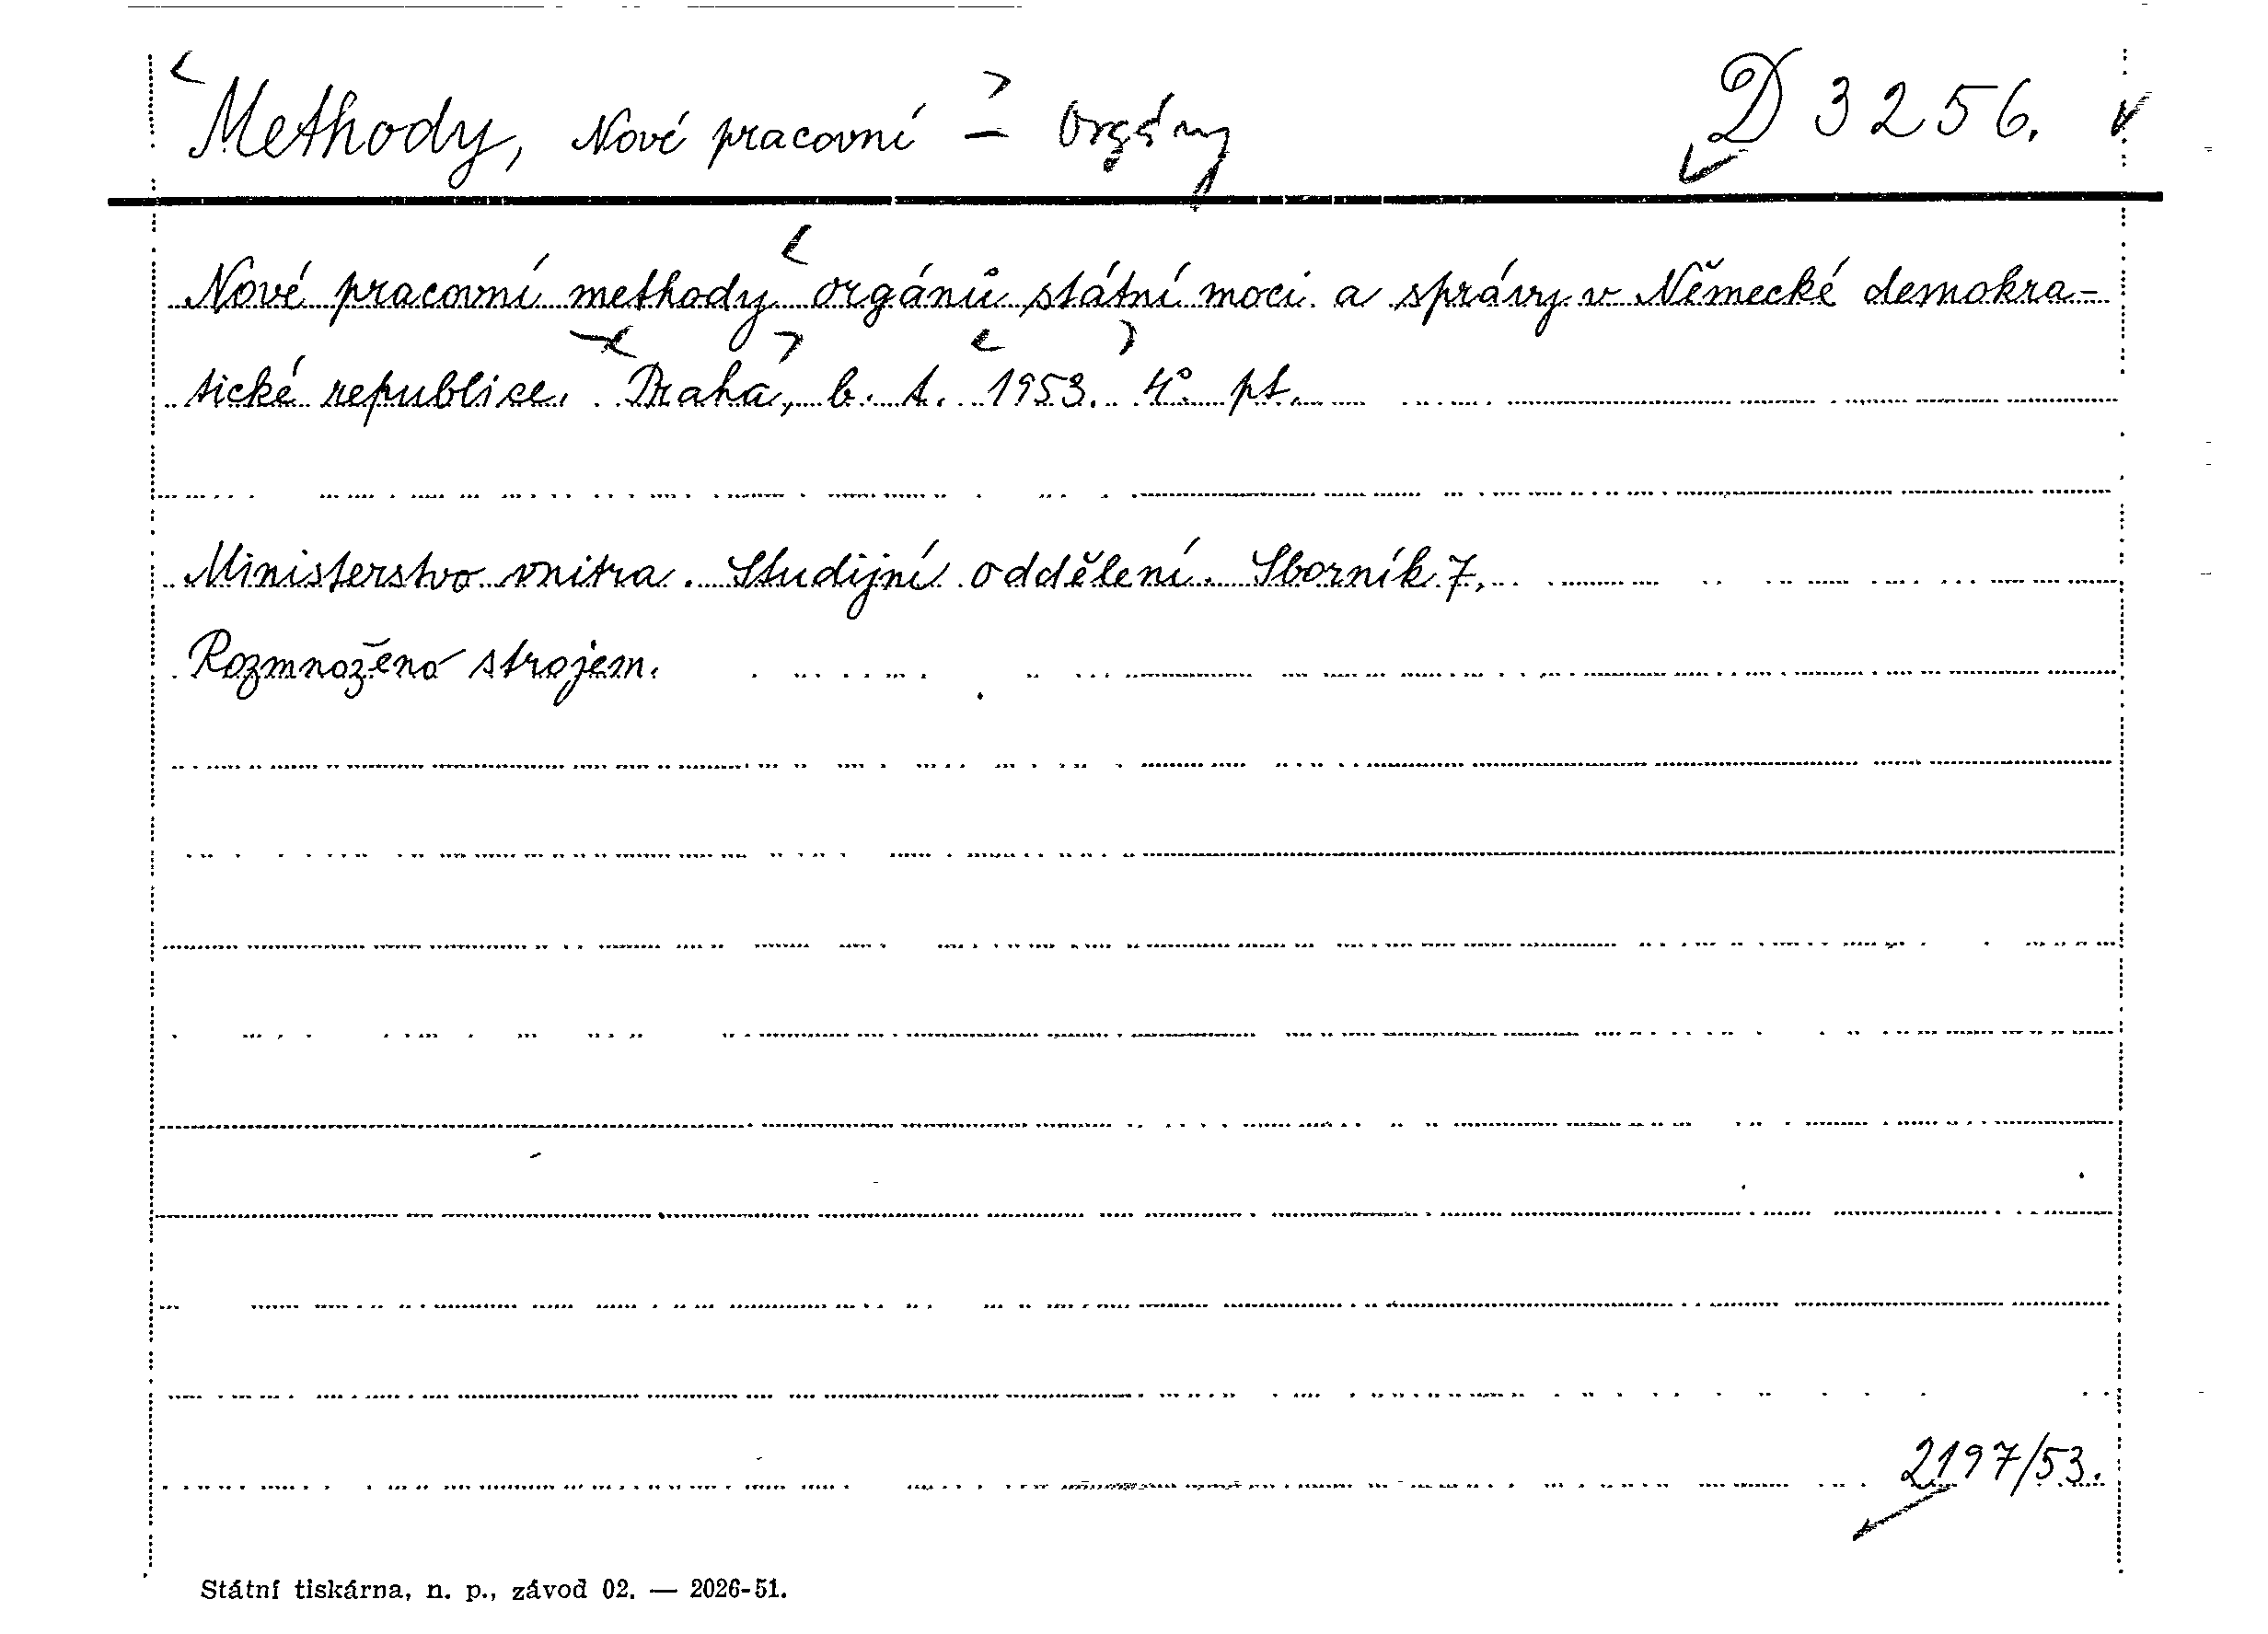 Methody, Nové pracovní – Orgány D 3256.
Nové pracovní methody orgánů státní moci a správy v Německé demokra-
tické republice. Praha, b. t. 1953. 4°. pt.
Ministerstvo vnitra. Studijní oddělení. Sborník 7.
Rozmnoženo strojem.
2197/53.
Státní tiskárna, n. p., závod 02. — 2026-51.